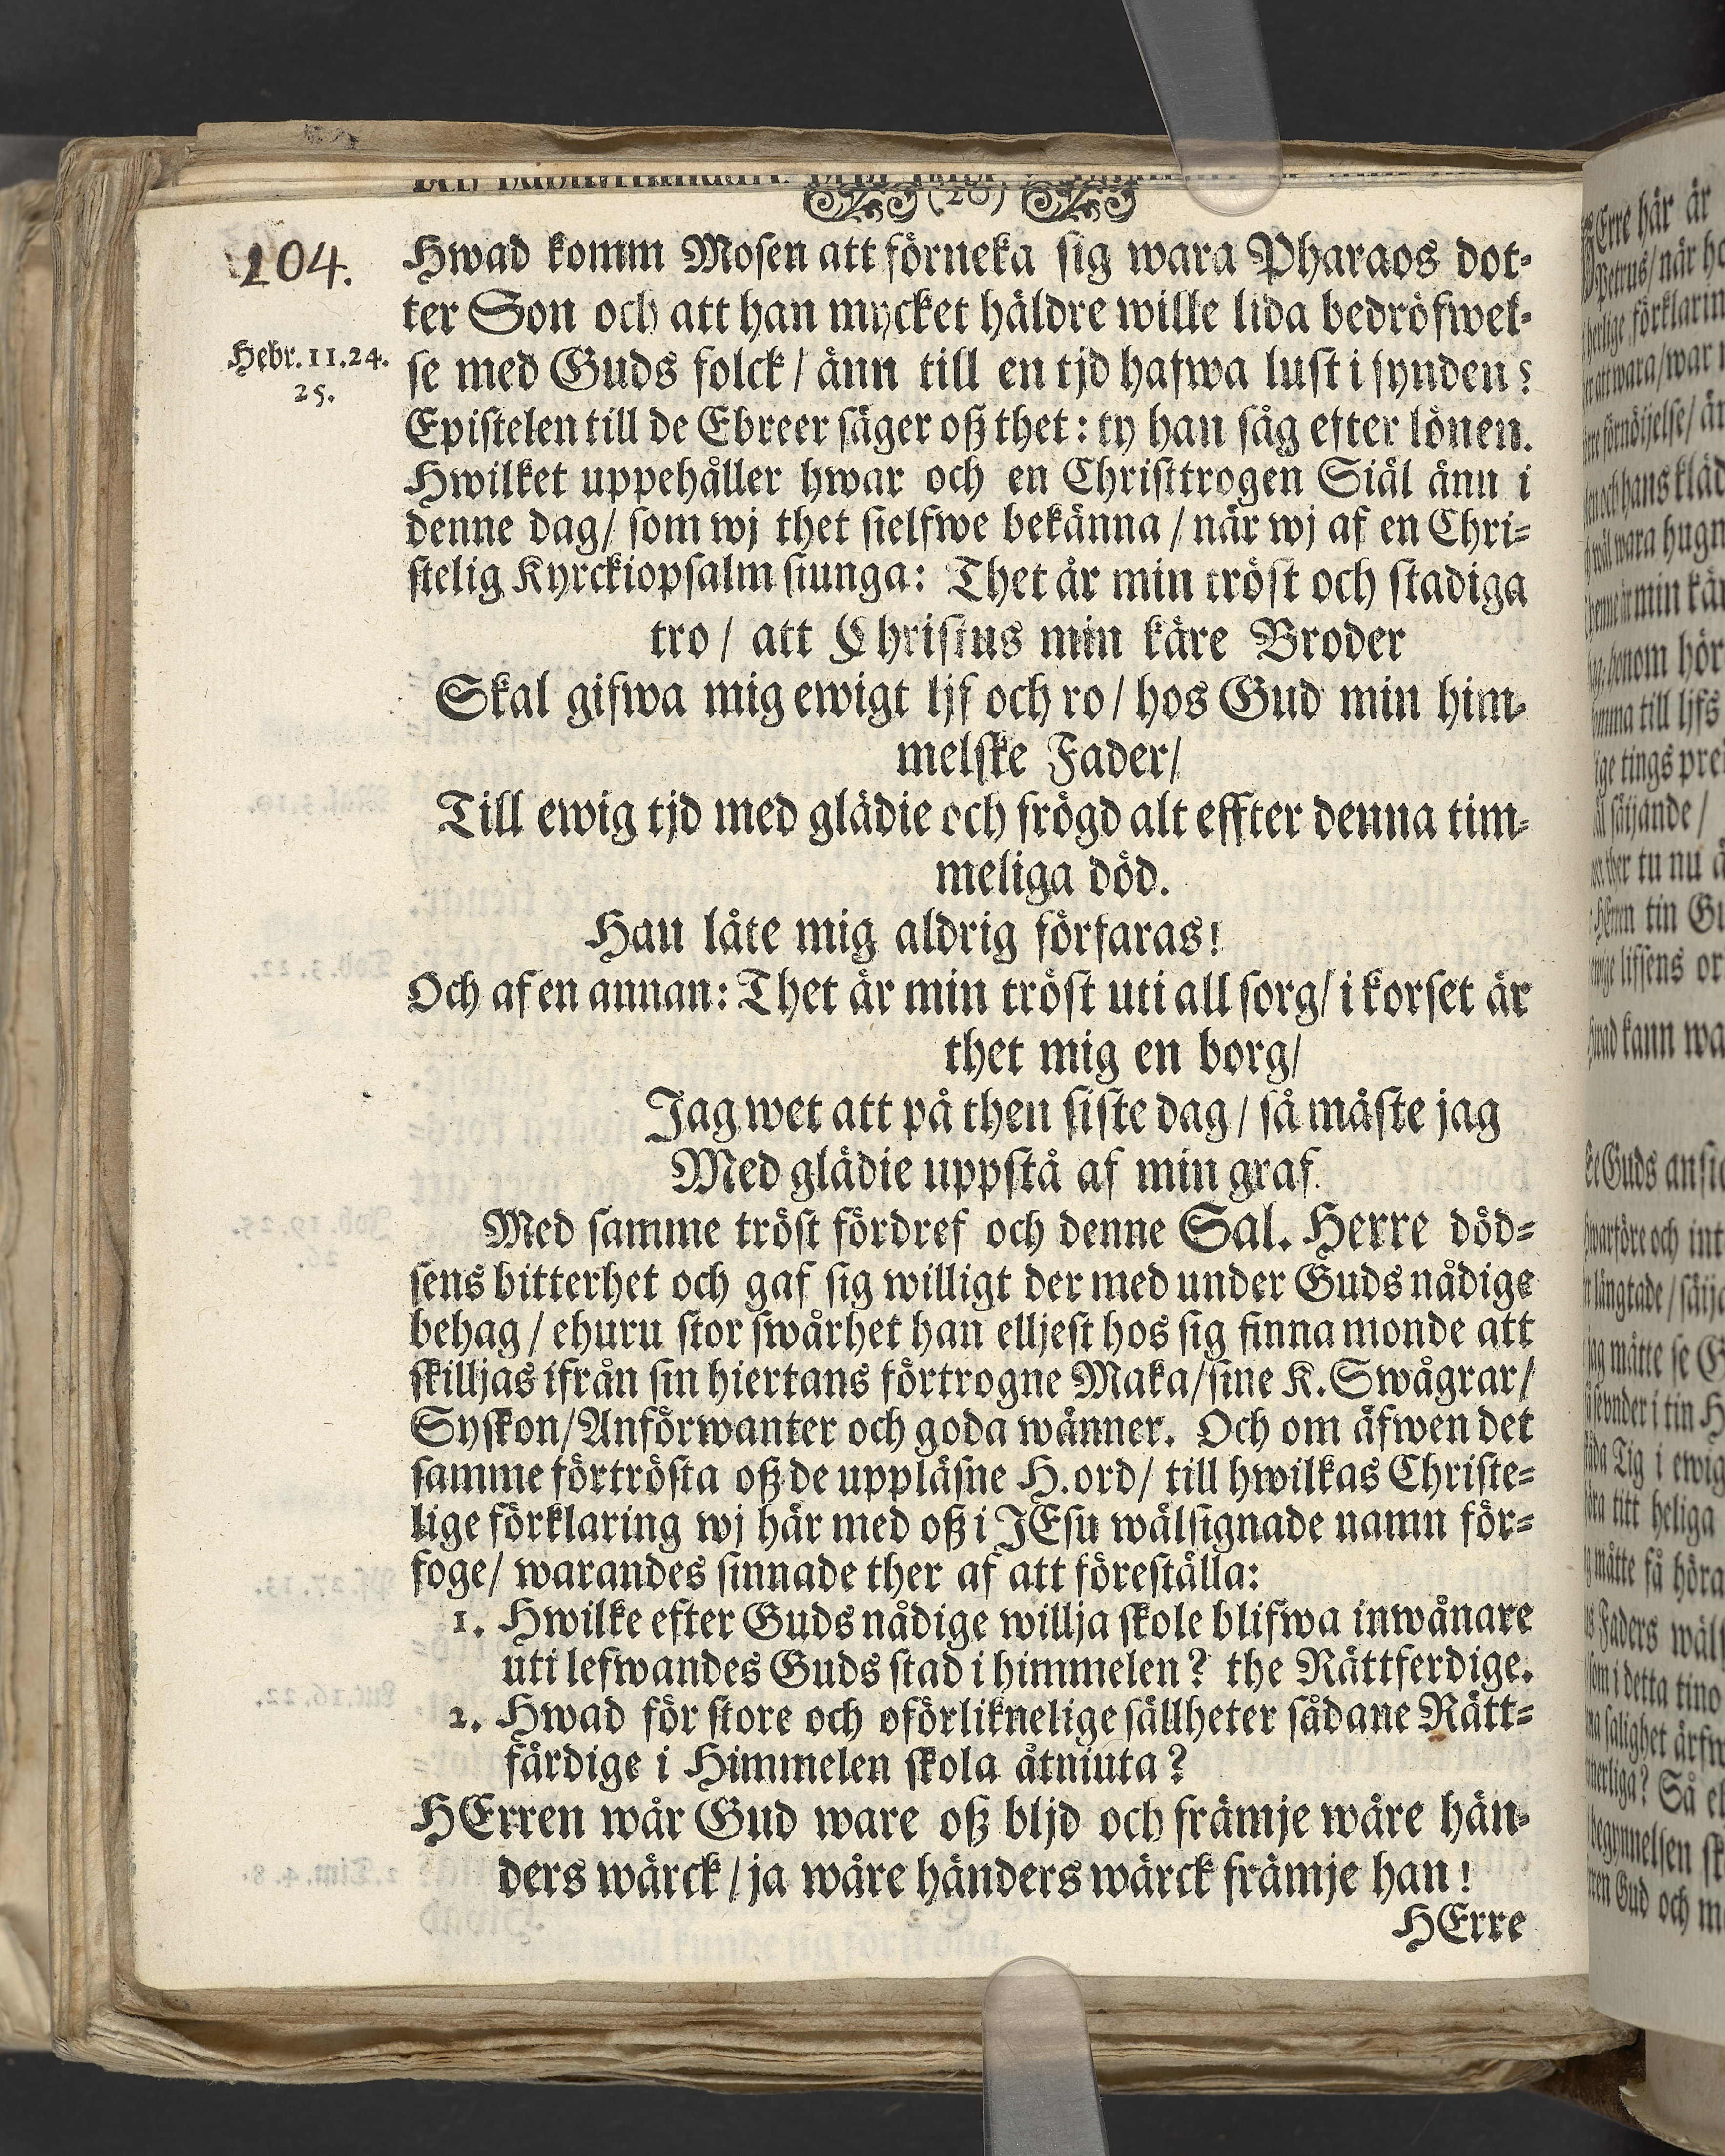 (20)
104.
Hwad komm Mosen att förneka sig wara Pharaos dot-
ter Son och att han mycket häldre wille lida bedröfwel-
Hebr. 11. 24.
25.
se med Guds folck / änn till en tjd hafwa lust i synden?
Epistelen till de Ebreer säger oß thet: ty han såg efter lönen.
Hwilket uppehåller hwar och en Christtrogen Siäl änn i
denne dag/ som wj thet sielfwe bekänna / när wj af en Chri-
stelig Kyrckiopsalm siunga: Thet är min tröst och stadiga
tro / att Christus min käre Broder
Skal gifwa mig ewigt ljf och ro / hos Gud min him-
melske Fader/
Till ewig tjd med glädie och frögd alt effter denna tim-
meliga död.
Han låte mig aldrig förfaras!
Och af en annan: Thet är min tröst uti all sorg/ i korset är
thet mig en borg/
Jag wet att på then siste dag / så måste jag
Med glädie uppstå af min graf.
Med samme tröst fördref och denne Sal. Herre död-
sens bitterhet och gaf sig willigt der med under Guds nådige
behag / ehuru stor swårhet han elljest hos sig finna monde att
skilljas ifrån sin hiertans förtrogne Maka/ sine K. Swågrar/
Syskon/ Anförwanter och goda wänner. Och om äfwen det
samme förtrösta oß de uppläsne H. ord/ till hwilkas Christe-
lige förklaring wj här med oß i JEsu wälsignade namn för-
foge/ warandes sinnade ther af att föreställa:
1. Hwilke efter Guds nådige willja skole blifwa inwånare
uti lefwandes Guds stad i himmelen? the Rättferdige.
2. Hwad för store och oförliknelige sällheter sådane Rätt-
färdige i Himmelen skola åtniuta?
HErren wår Gud ware oß bljd och främje wåre hän-
ders wärck / ja wåre händers wärck främje han!
HErre